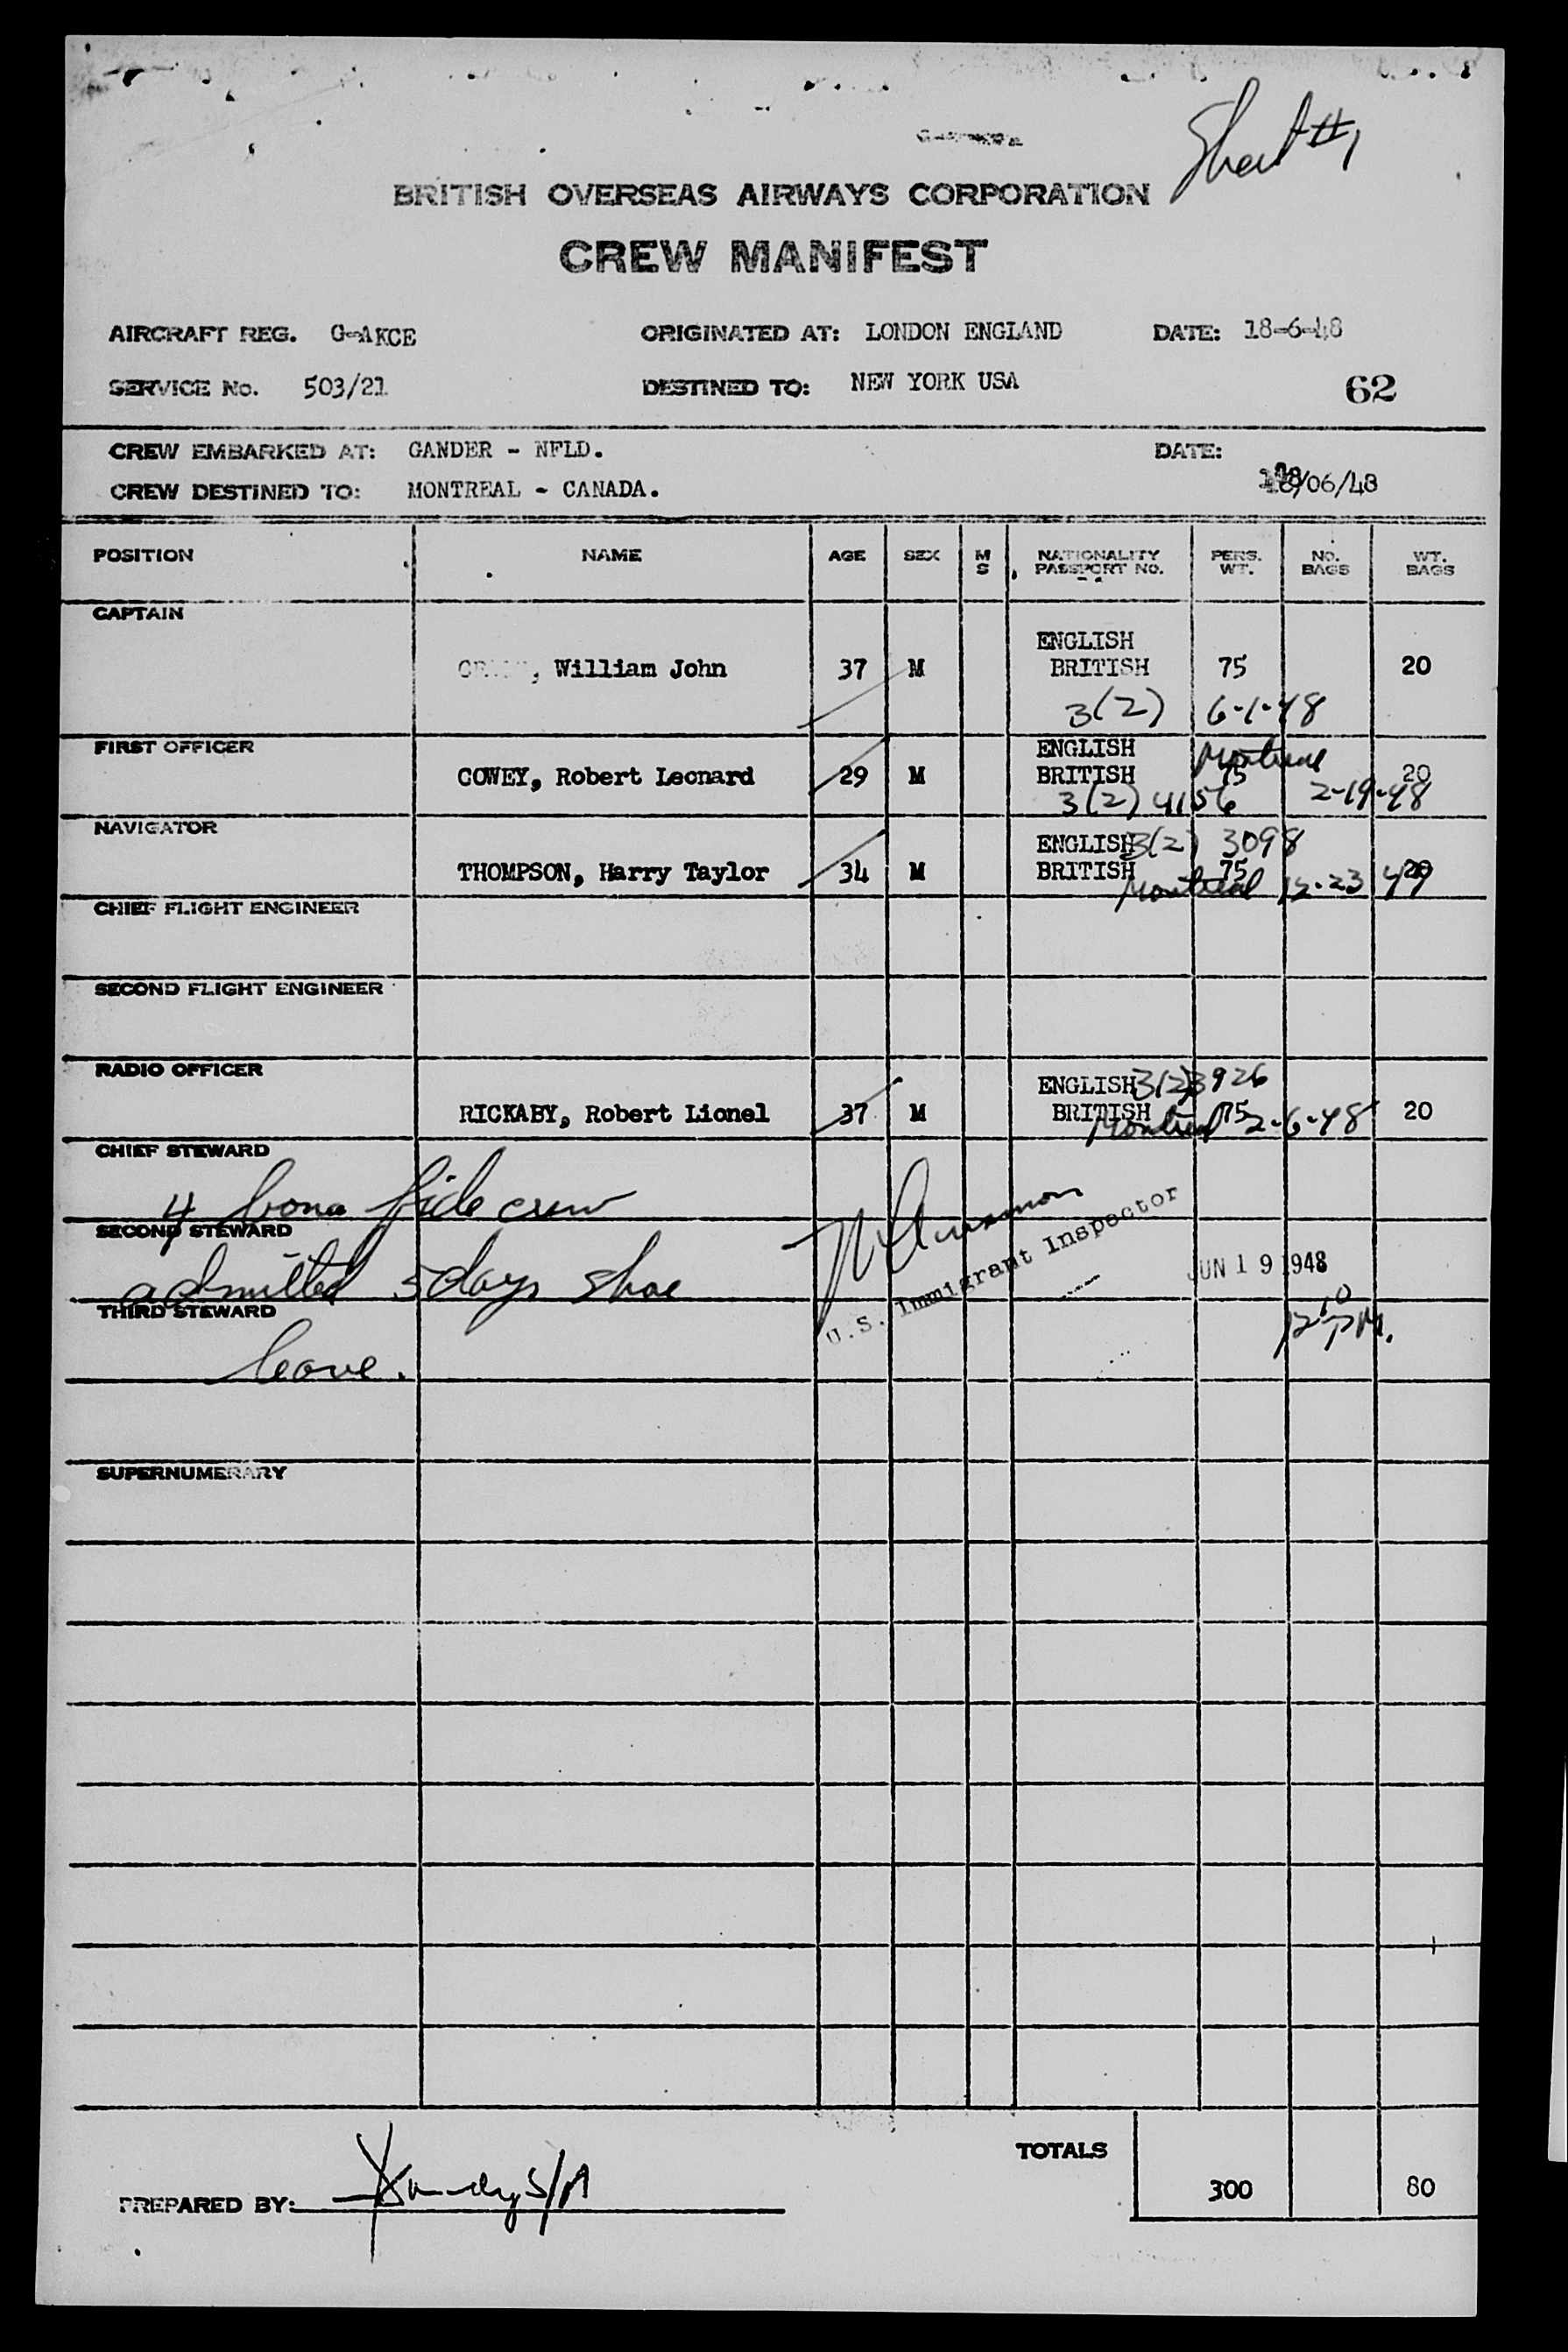 Sheet #1
BRITISH OVERSEAS AIRWAYS CORPORATION
CREW MANIFEST
AIRCRAFT REG. G-AKCE ORIGINATED AT: LONDON ENGLAND DATE: 18-6-48
SERVICE No. 503/21 DESTINED TO: NEW YORK USA 62
CREW EMBARKED AT: GANDER - NFLD. DATE:
CREW DESTINED TO: MONTREAL - CANADA. /06/48
POSITION NAME AGE SEX M S NATIONALITY PASSPORT NO. PERS. WT. NO. BAGS WT. BAGS
CAPTAIN
ENGLISH
William John 37 M BRITISH 75 20
3(2) 6-1-48
FIRST OFFICER ENGLISH Montreal
COWEY, Robert Leonard 29 M BRITISH 75 20
3(2) 4156 2-19-48
NAVIGATOR ENGLISH 3(2) 3098
THOMPSON, Harry Taylor 34 M BRITISH 75 20
Montreal 12-23 47
CHIEF FLIGHT ENGINEER
SECOND FLIGHT ENGINEER
RADIO OFFICER ENGLISH 3(2) 3926
RICKABY, Robert Lionel 37 M BRITISH 75 20
Montreal 2-6-48
CHIEF STEWARD
4 bona fide crew
SECOND STEWARD U.S. Immigrant Inspector
admitted 5 days shoe JUN 19 1948
THIRD STEWARD 12 10 PM.
leave.
SUPERNUMERARY
TOTALS
PREPARED BY: 300 80